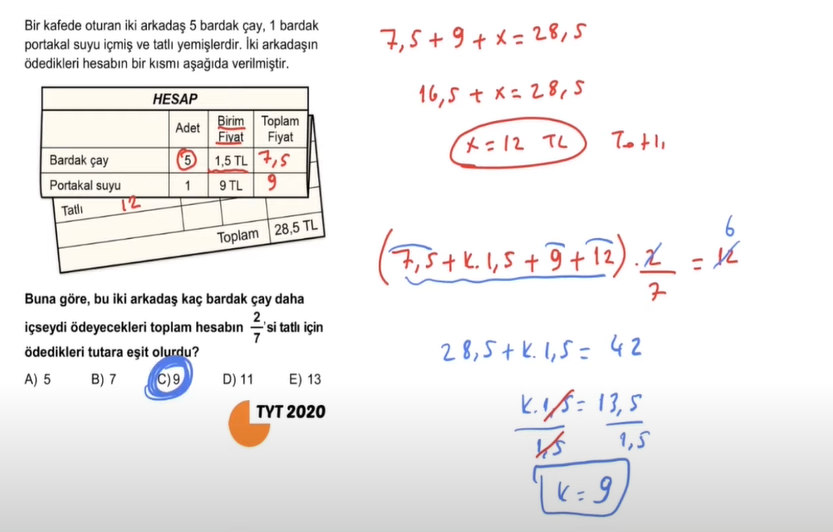 Bir kafede oturan iki arkadaş 5 bardak çay, 1 bardak
portakal suyu içmiş ve tatlı yemişlerdir. İki arkadaşın
ödedikleri hesabın bir kısmı aşağıda verilmiştir.
HESAP
Adet Birim Fiyat Toplam Fiyat
Bardak çay 5 1,5 TL 7,5
Portakal suyu 1 9 TL 9
Tatlı 12
Toplam 28,5 TL
Buna göre, bu iki arkadaş kaç bardak çay daha
içseydi ödeyecekleri toplam hesabın 2/7'si tatlı için
ödedikleri tutara eşit olurdu?
A) 5 B) 7 C) 9 D) 11 E) 13
TYT 2020
7,5 + 9 + x = 28,5
16,5 + x = 28,5
x = 12 TL Tatlı
(7,5 + k.1,5 + 9 + 12) . 2/7 = 12 6
28,5 + k.1,5 = 42
k.1,5 = 13,5
1,5 1,5
k = 9